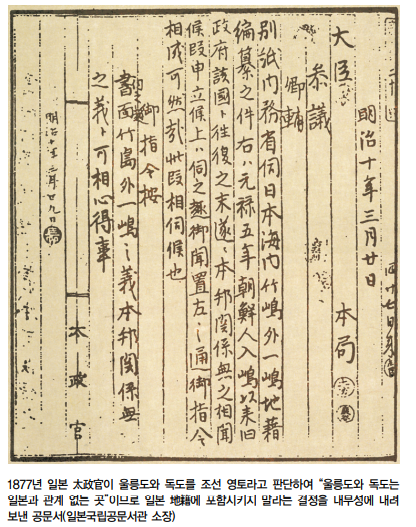 明治十年三月廿日
大臣
本局
参議
卿輔
別紙内務省伺日本海内竹嶋外一嶋地籍
編纂之件右ハ元禄五年朝鮮人入嶋以来旧
政府該國ト往復之末遂ニ本邦関係無之相聞
候段申立候上ハ伺之趣御聞置左之通御指令
相成可然哉此段相伺候也
御指令按
書面竹島外一嶋之義本邦関係無
之義ト可相心得事
太政官
明治十年三月廿九日
1877년 일본 太政官이 울릉도와 독도를 조선 영토라고 판단하여 “울릉도와 독도는
일본과 관계 없는 곳”이므로 일본 地籍에 포함시키지 말라는 결정을 내무성에 내려
보낸 공문서(일본국립공문서관 소장)